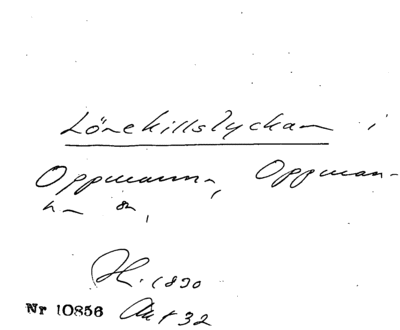 Lönekillslyckan i
Oppmanna, Oppman-
na sn,
H. 1890
Nr 10856 Akt 32